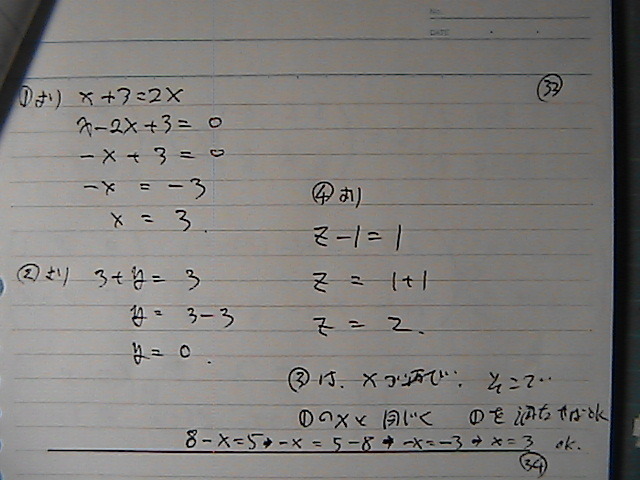 No.
DATE
㉝
①より x+3=2x
x-2x+3=0
-x+3=0
-x=-3
x=3.
②より 3+y=3
y=3-3
y=0.
④より
z-1=1
z=1+1
z=2.
③は、xが
①のxと同じく ①を満たせばok
8-x=5→-x=5-8→-x=-3→x=3 ok.
㉞